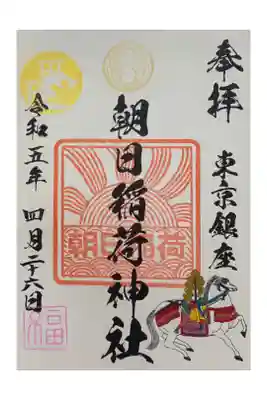 奉拝
東京銀座
朝日稲荷神社
朝日稲荷
令和五年 四月二十六日
福